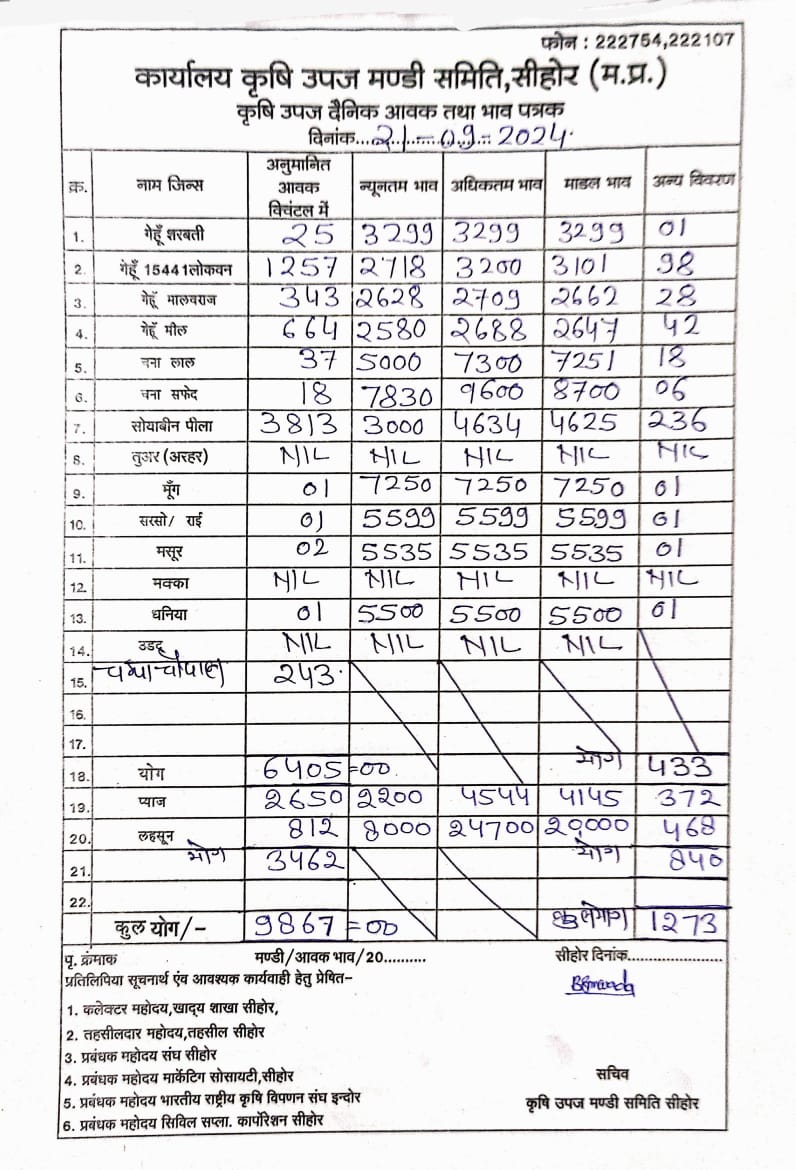 फोन : 222754,222107
कार्यालय कृषि उपज मण्डी समिति,सीहोर (म.प्र.)
कृषि उपज दैनिक आवक तथा भाव पत्रक
दिनांक...21-09-2024.
क्र. नाम जिन्स अनुमानित आवक क्विंटल में न्यूनतम भाव अधिकतम भाव माडल भाव अन्य विवरण
1. गेहूँ शरबती 25 3299 3299 3299 01
2. गेहूँ 15441लोकवन 1257 2718 3200 3101 98
3. गेहूँ मालवराज 343 2628 2709 2662 28
4. गेहूँ मील 664 2580 2688 2647 42
5. चना लाल 37 5000 7300 7251 18
6. चना सफेद 18 7830 9600 8700 06
7. सोयाबीन पीला 3813 3000 4634 4625 236
8. तुअर (अरहर) NIL NIL NIL NIL NIL
9. मूँग 01 7250 7250 7250 01
10. सरसो/ राई 01 5599 5599 5599 01
11. मसूर 02 5535 5535 5535 01
12. मक्का NIL NIL NIL NIL NIL
13. धनिया 01 5500 5500 5500 01
14. उडद NIL NIL NIL NIL
15. 243.
16.
17.
18. योग 6405=00 योग 433
19. प्याज 2650 2200 4544 4145 372
20. लहसून 812 8000 24700 20000 468
21. योग 3462 योग 840
22.
कुल योग/- 9867=00 कुलयोग 1273
पृ. क्रंमाक मण्डी/आवक भाव/20.......... सीहोर दिनांक......................
प्रतिलिपिया सूचनार्थ एंव आवश्यक कार्यवाही हेतु प्रेषित-
1. कलेक्टर महोदय,खाद्य शाखा सीहोर,
2. तहसीलदार महोदय,तहसील सीहोर
3. प्रबंधक महोदय संघ सीहोर
4. प्रबंधक महोदय मार्केटिग सोसायटी,सीहोर
सचिव
5. प्रबंधक महोदय भारतीय राष्ट्रीय कृषि विपणन संघ इन्दोर
कृषि उपज मण्डी समिति सीहोर
6. प्रबंधक महोदय सिविल सप्ला. कार्पोरेशन सीहोर